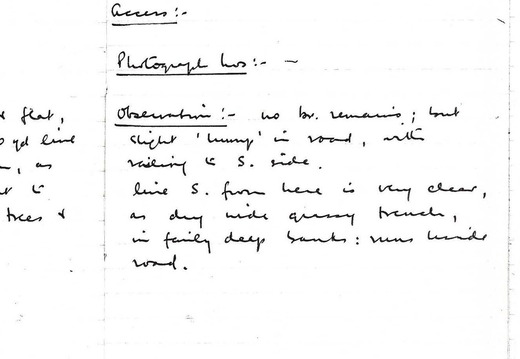 Access:-
Photograph Nos:- —
& flat,
Observation:- no br. remains; but
yd line
slight 'hump' in road, with
, as
railing to S. side.
t to
line S. from here is very clear,
trees &
as dry wide grassy trench,
in fairly deep banks: runs beside
road.